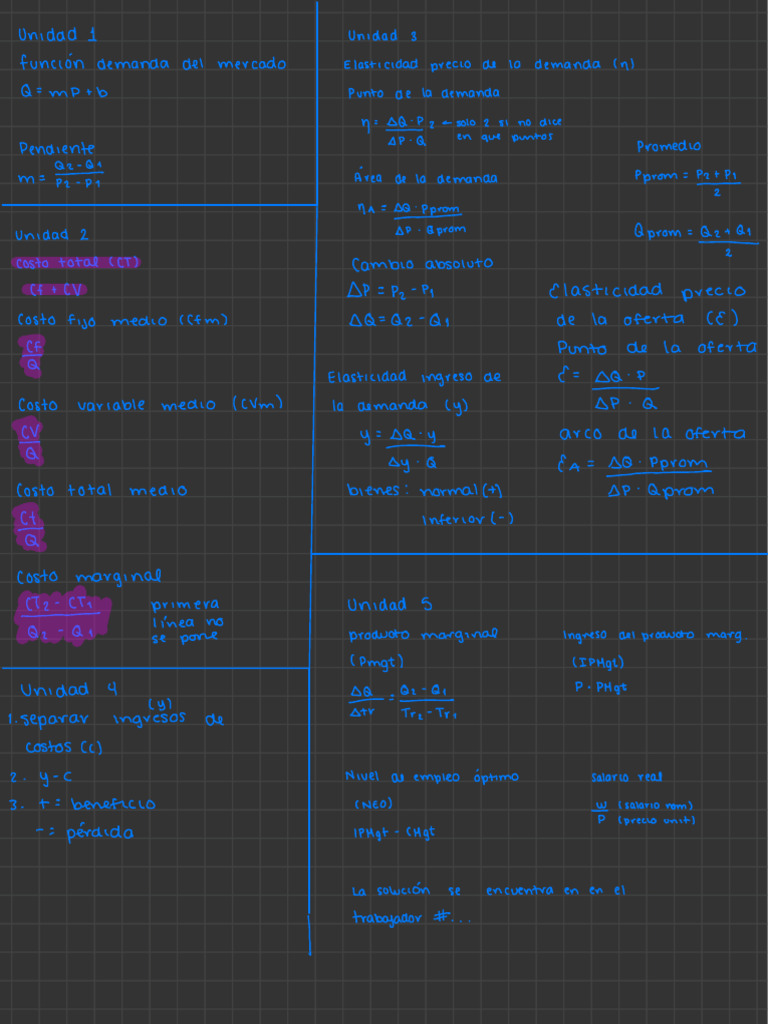 Unidad 1
función demanda del mercado
Q = mP + b
Pendiente
m = Q2 - Q1 / P2 - P1
Unidad 2
Costo total (CT)
Cf + CV
Costo fijo medio (Cfm)
CF / Q
Costo variable medio (CVm)
CV / Q
Costo total medio
Ct / Q
Costo marginal
CT2 - CT1 / Q2 - Q1
primera
línea no
se pone
Unidad 4
(y)
1. separar ingresos de
costos (c)
2. y - c
3. + = beneficio
- = pérdida
Unidad 3
Elasticidad precio de la demanda (η)
Punto de la demanda
η = ΔQ · P / ΔP · Q 2 ← solo 2 si no dice
en que puntos
Área de la demanda
ηA = ΔQ · Pprom / ΔP · Qprom
Promedio
Pprom = P2 + P1 / 2
Qprom = Q2 + Q1 / 2
Cambio absoluto
ΔP = P2 - P1
ΔQ = Q2 - Q1
Elasticidad ingreso de
la demanda (y)
y = ΔQ · y / Δy · Q
bienes: normal (+)
inferior (-)
Elasticidad precio
de la oferta (Ɛ)
Punto de la oferta
Ɛ = ΔQ · P / ΔP · Q
arco de la oferta
ƐA = ΔQ · Pprom / ΔP · Qprom
Unidad 5
producto marginal
(Pmgt)
ΔQ / Δtr = Q2 - Q1 / Tr2 - Tr1
Ingreso del producto marg.
(IPMgt)
P · PMgt
Nivel de empleo óptimo
(NEO)
IPMgt - CMgt
Salario real
W / P
(salario nom)
(precio unit)
La solución se encuentra en en el
trabajador #...